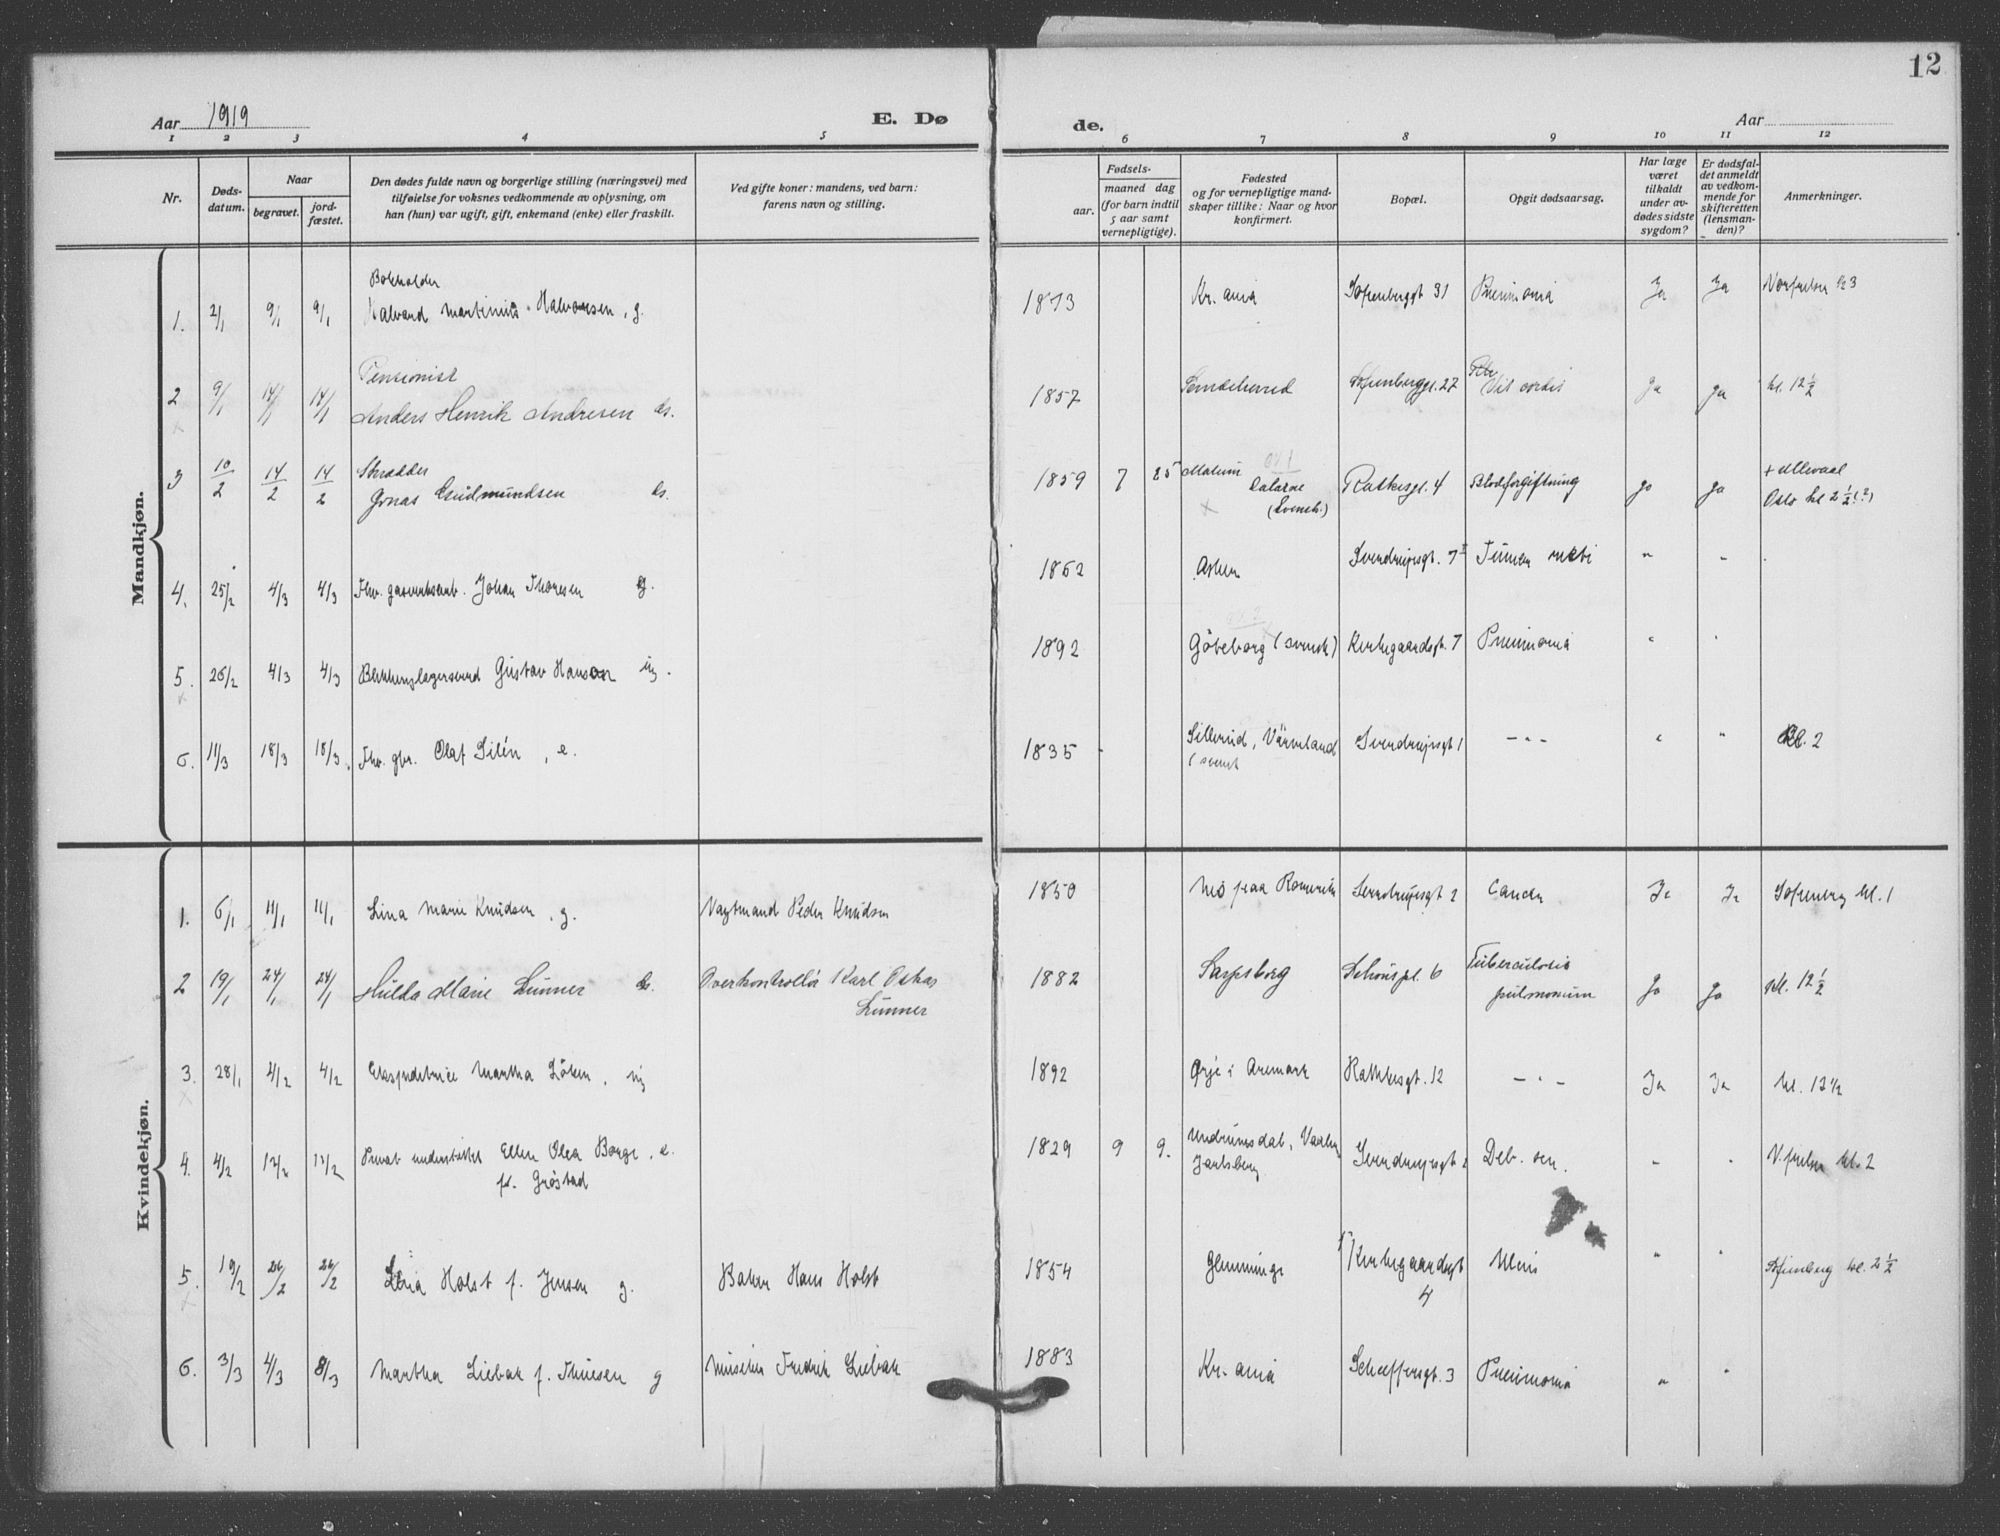 12
Aar 1919
E. Dø
de.
Aar
1 2 3 4 5
6 7 8 9 10 11 12
Nr.
Døds-
datum.
Naar
begravet.
jord-
fæstet.
Den dødes fulde navn og borgerlige stilling (næringsvei) med
tilføielse for voksnes vedkommende av oplysning, om
han (hun) var ugift, gift, enkemand (enke) eller fraskilt.
Ved gifte koner: mandens, ved barn:
farens navn og stilling.
Fødsels-
aar.
maaned dag
(for barn indtil
5 aar samt
vernepligtige).
Fødested
og for vernepligtige mand-
skaper tillike: Naar og hvor
konfirmert.
Bopæl.
Opgit dødsaarsag.
Har læge
været
tilkaldt
under av-
dødes sidste
sygdom?
Er dødsfal-
det anmeldt
av vedkom-
mende for
skifteretten
(lensman-
den)?
Anmerkninger.
Mandkjøn.
Bokholder
1. 2/1 9/1 9/1 Halvard Martinius Halvorsen, g. 1873 Kr.ania Sofienberggt 31 Pneumonia Ja Ja
Pensionist
2 9/1 14/1 14/1 Anders Henrik Andresen 1857 Sofienberggt. 27 Vit cordis Ja Ja kl. 12 1/2
Skrædder
3 10/2 14/2 14/2 Jonas Gudmundsen 1859 7 25 Dalarne Ratkesgt. 4 Blodforgiftning ja Ja + Ullevaal
(Svensk.) Oslo kl 2 1/2 (?)
4. 25/2 4/3 4/3 Johan Thoresen g. 1862 Asker Sverdrupsgt. 7 " "
5. 26/2 4/3 4/3 Gustav Hanson ug. 1892 Göteborg (svensk) Kirkegaardsgt. 7 Pneumonia " "
6. 11/3 18/3 18/3 Olaf Silén, e. 1835 Sillerud, Värmland Sverdrupsgt 1 - " - " " Kl. 2
(svensk
Kvindekjøn.
1. 6/1 11/1 11/1 Lina Marie Knudsen, g. Vagtmand Peder Knudsen 1850 Nes paa Romerike Sverdrupsgt 2 Cancer Ja Ja Sofienberg kl. 1
2 19/1 24/1 24/1 Hulda Marie Lunner Overkontrollør Karl Oskar 1882 Sarpsborg Schouspl. 6 Tuberculosis Ja Ja Kl. 12 1/2
Lunner pulmonum
3. 28/1 4/2 4/2 Ekspeditrice Martha Löken, ug 1892 Ørje i Aremark Rathkesgt. 12 - " - Ja Ja kl. 12 1/2
4. 4/2 12/2 12/2 Privat understøttet Ellen Olea Borge, e. 1829 9 9. Sverdrupsgt 2 Deb. sen. " " V. frelser kl. 2
f. Grøstad Jarlsberg
5. 19/2 26/2 26/2 Holst f. Jensen g. Baker Hans Holst 1854 Glemminge Kirkegaardsgt 4 Ulcus " " Sofienberg kl. 2 1/2
6. 3/3 4/3 8/3 Martha Liebak f. Thuesen g Fredrik Liebak 1883 Kr.ania Schæffersgt. 3 Pneumonia " "